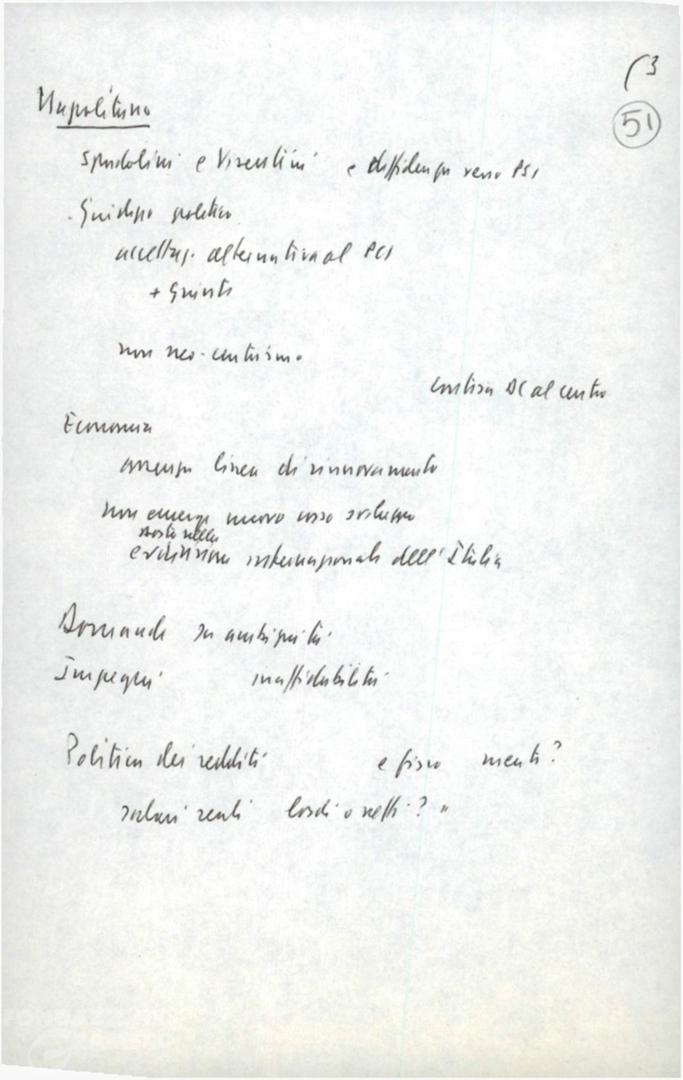 (3
51
Napolitano
Spadolini e Visentini e diffidenza verso PSI
politico
accettaz. alternativa al PCI
+ Giunte
non neo-centrismo
DC al centro
Economia
linea di rinnovamento
non emerge nuovo corso sviluppo
posto nella
internazionale dell'Italia
Domande su ambiguità
Impegni inaffidabilità
Politica dei redditi e fisco niente?
salari reali lordi o netti? "